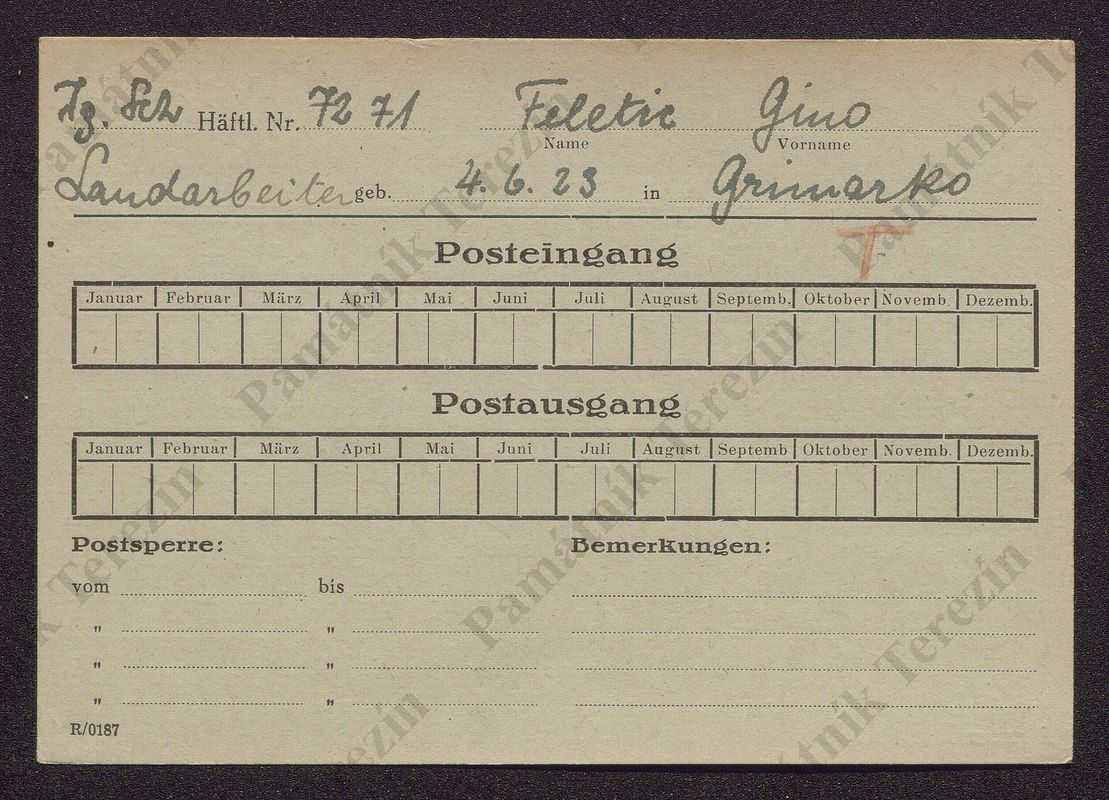 Jg. Sch Häftl. Nr. 7271 Feletic Gino
Name Vorname
Landarbeiter geb. 4. 6. 23 in Grimarko
T
Posteingang
Januar Februar März April Mai Juni Juli August Septemb. Oktober Novemb. Dezemb.
Postausgang
Januar Februar März April Mai Juni Juli August Septemb Oktober Novemb. Dezemb.
Postsperre: Bemerkungen:
vom bis
" "
" "
" "
R/0187
Památník Terezín